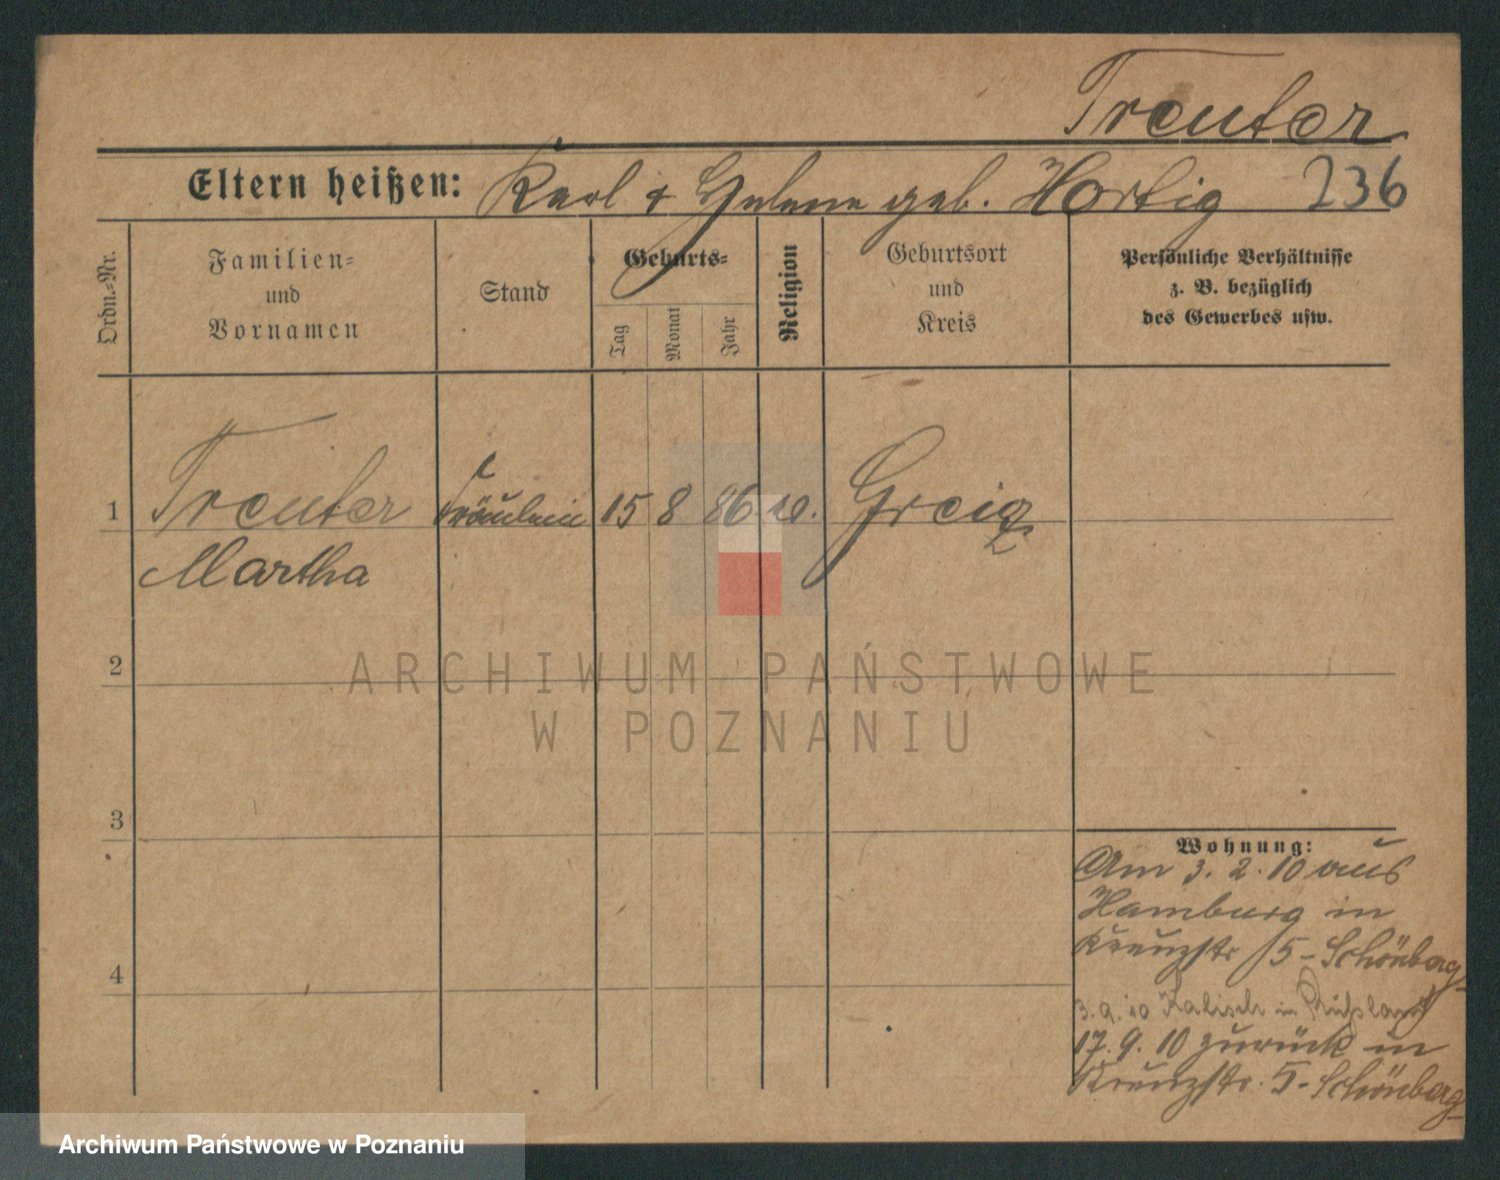 Treuter
Eltern heißen: Karl & Helene geb. Hortig 236
Ordn.-Nr.
Familien-
und
Vornamen
Stand
Geburts-
Tag
Monat
Jahr
Religion
Geburtsort
und
Kreis
Persönliche Verhältnisse
z. B. bezüglich
des Gewerbes usw.
1 Treuter Fräulein 15 8 86 Greiz
Martha
2
3
4
ARCHIWUM PAŃSTWOWE
W POZNANIU
Wohnung:
Am 3. 2. 10 aus
Hamburg in
Kreuzstr 5 - Schönberg
3. 9. 10 Kalisch in Rußland
17. 9. 10 zurück in
Kreuzstr. 5 - Schönberg
Archiwum Państwowe w Poznaniu